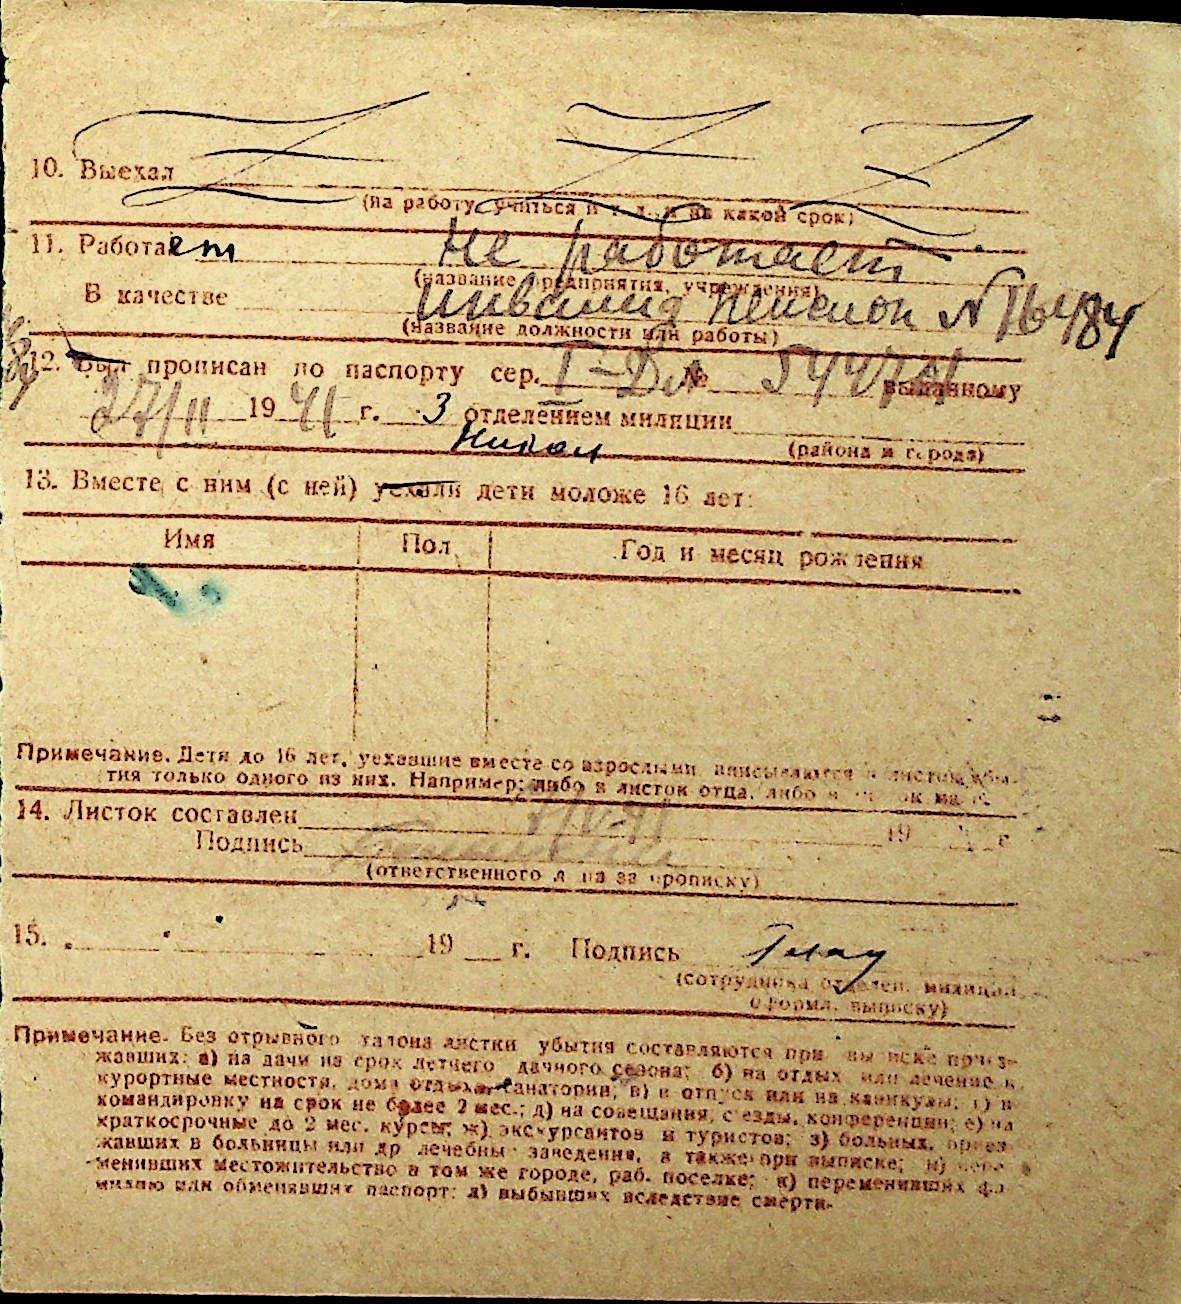 10. Выехал
(на работу, учиться и т. д. и на какой срок)
11. Работает не работает
(название предприятия, учреждения)
В качестве инвалид пенсион №
(название должности или работы)
12. Был прописан по паспорту сер. № выданному
27/II 1941 г. 3 отделением милиции
(района и города)
13. Вместе с ним (с ней) уехали дети моложе 16 лет:
Имя Пол Год и месяц рождения
Примечание. Дети до 16 лет, уехавшие вместе со взрослыми, вписываются в листок убы-
тия только одного из них. Например: либо в листок отца, либо в
14. Листок составлен 19 г
Подпись
(ответственного лица за прописку)
15. 19 г. Подпись
(сотрудника отделен. милиции,
оформл. выписку)
Примечание. Без отрывного талона листки убытия составляются при выписке приез-
жавших: а) на дачи на срок летнего дачного сезона; б) на отдых или лечение в
курортные местности, дома отдыха, санатории; в) в отпуск или на каникулы; г) в
командировку на срок не более 2 мес.; д) на совещания, съезды, конференции; е) на
краткосрочные до 2 мес. курсы; ж) экскурсантов и туристов; з) больных, приез-
жавших в больницы или др лечебны заведения, а также при выписке; и) пере-
менивших местожительство в том же городе, раб. поселке; к) переменивших фа-
милию или обменявших паспорт; л) выбывших вследствие смерти.